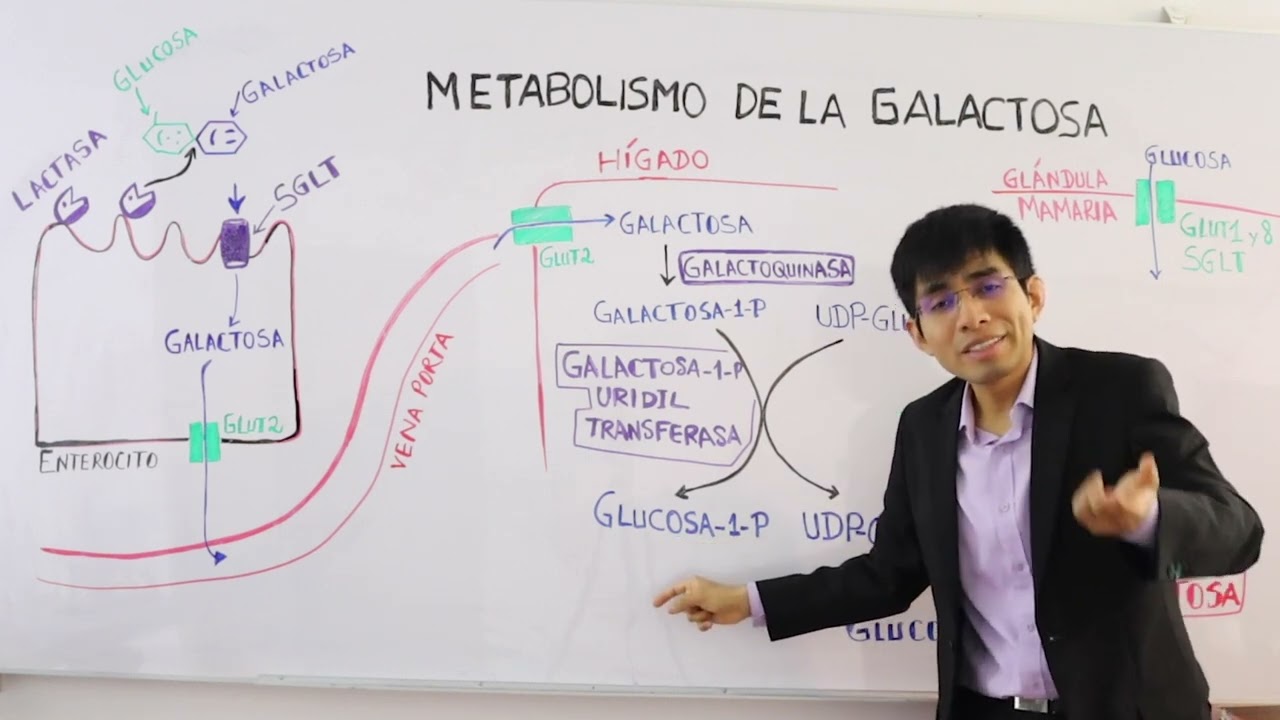 METABOLISMO DE LA GALACTOSA
GLUCOSA
GALACTOSA
LACTASA
SGLT
GALACTOSA
GLUT2
ENTEROCITO
VENA PORTA
HÍGADO
GLUT2
GALACTOSA
GALACTOQUINASA
GALACTOSA-1-P
UDP-GLU
GALACTOSA-1-P
URIDIL
TRANSFERASA
GLUCOSA-1-P
UDP-G
GLUCO
GLÁNDULA
MAMARIA
GLUCOSA
GLUT1 y 8
SGLT
TOSA